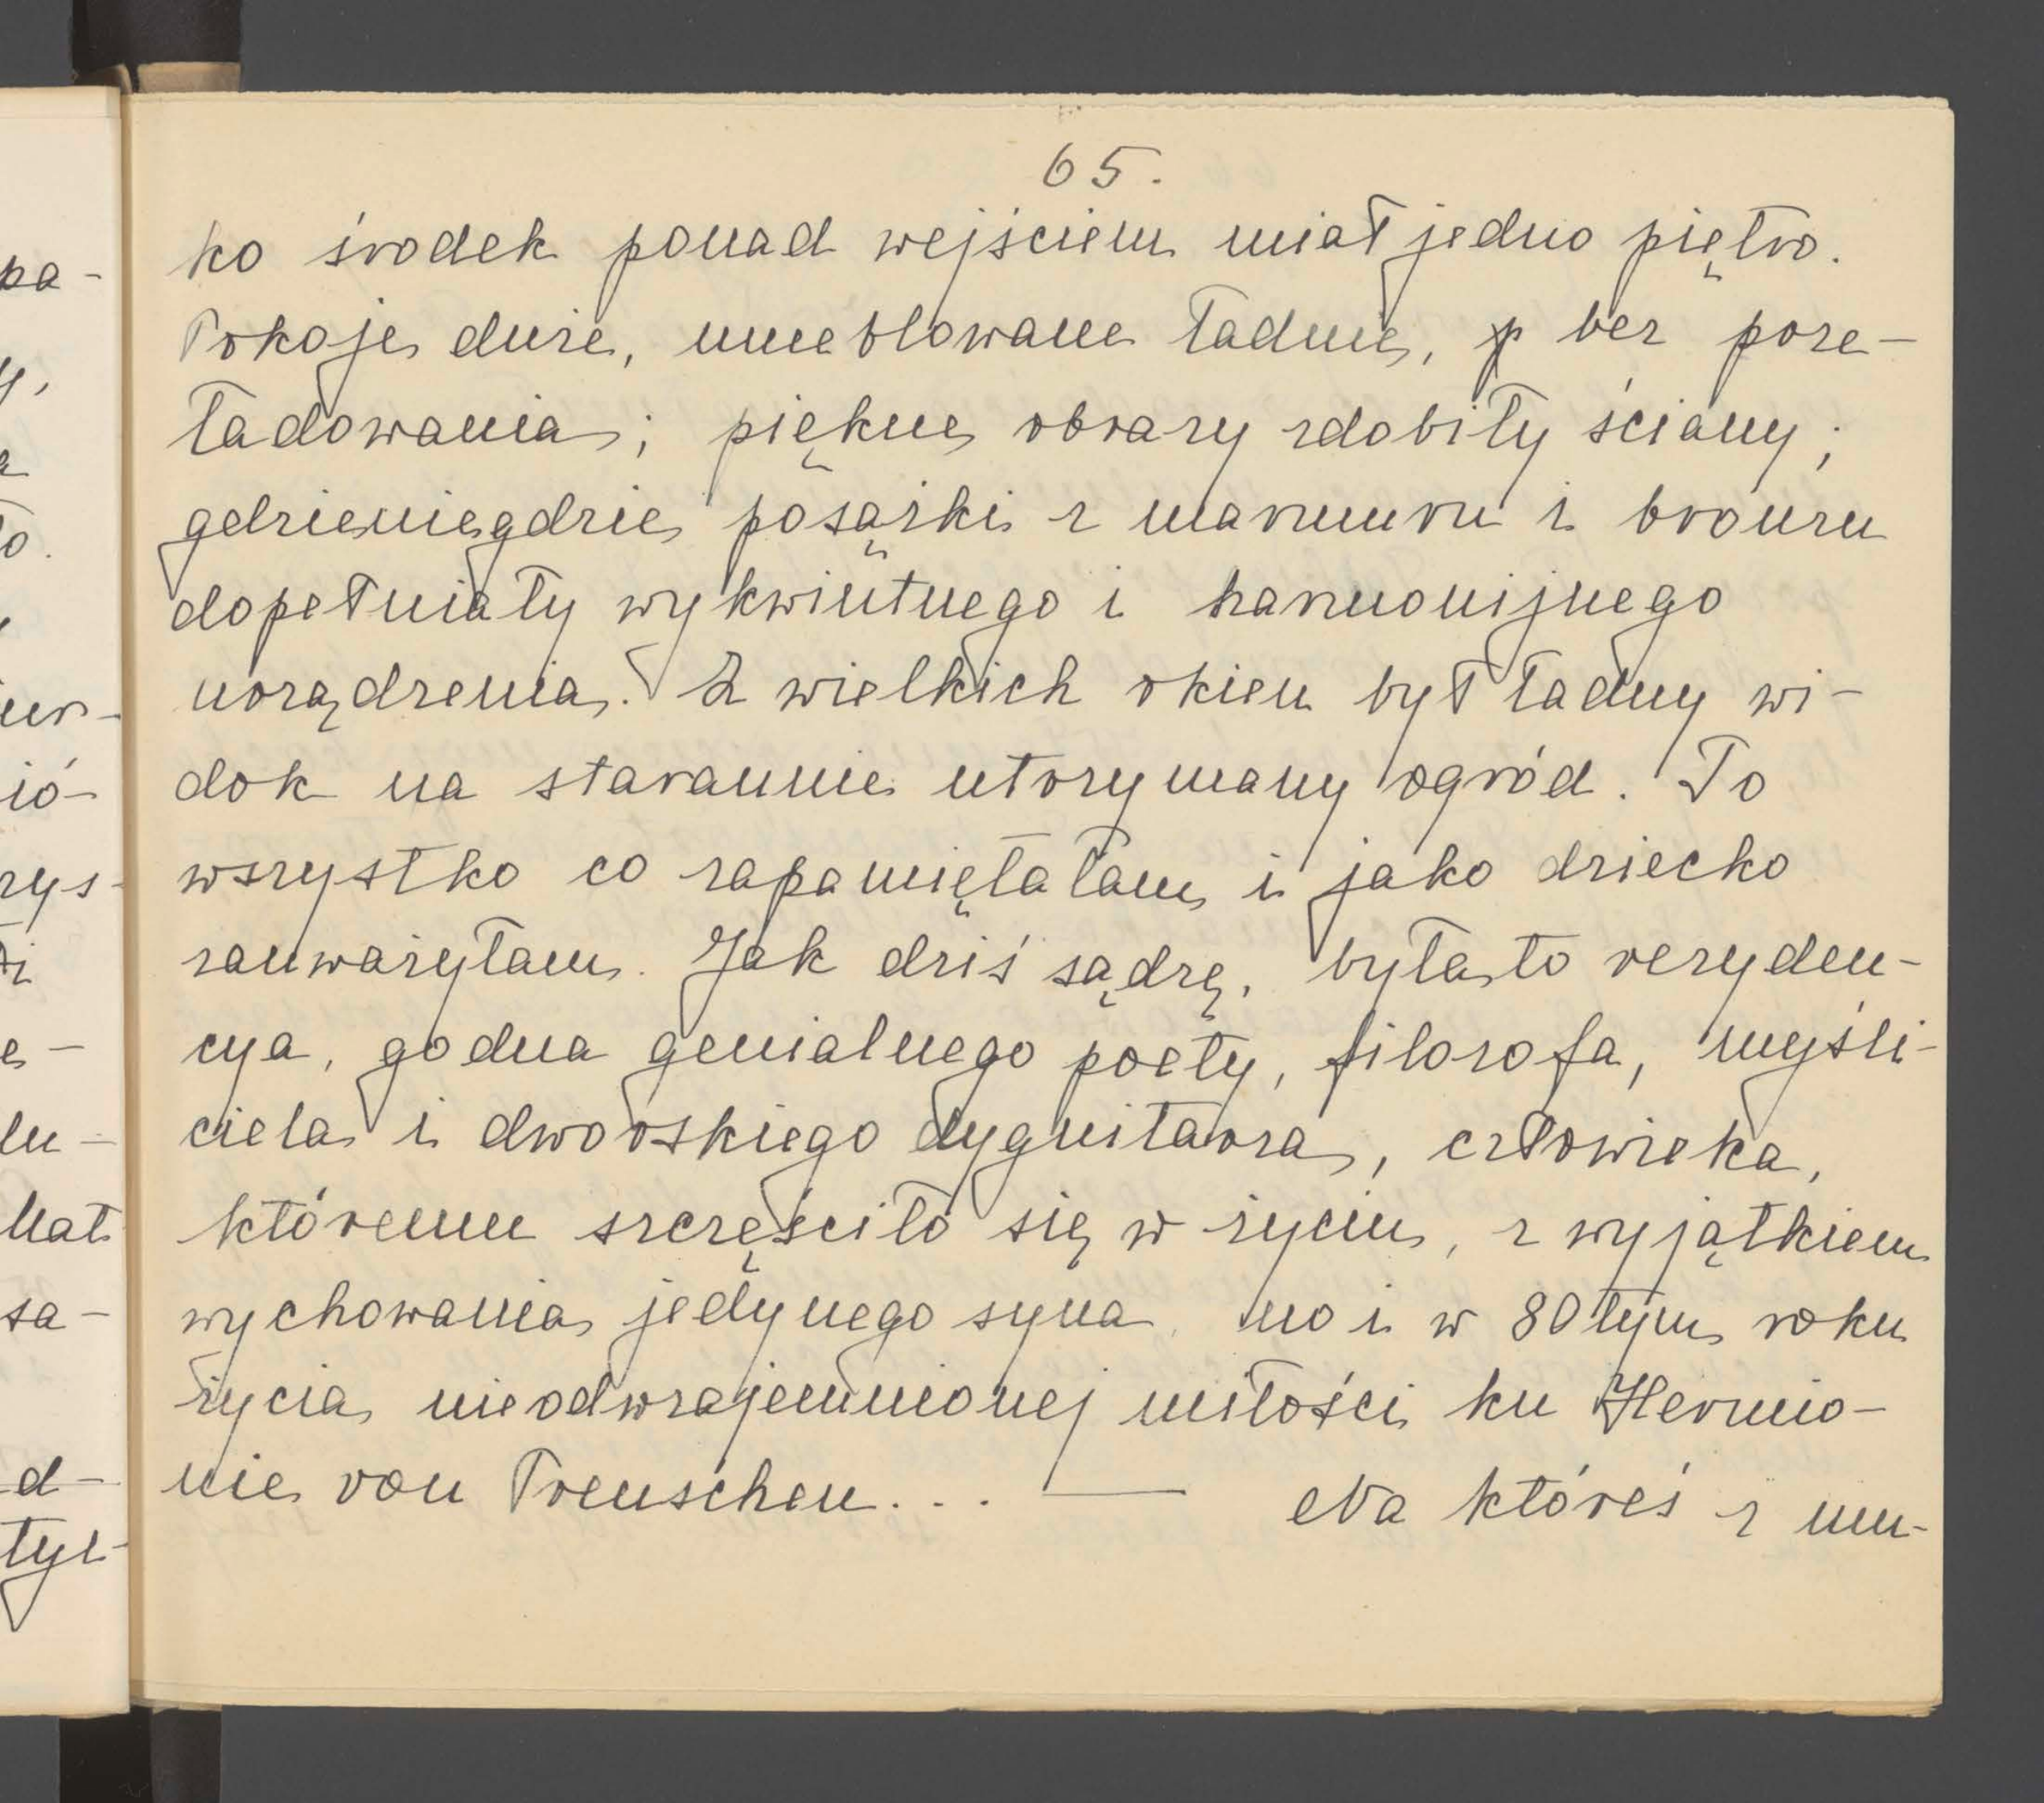 65.
ko środek ponad wejściem miał jedno piętro.
Pokoje duże, umeblowane ładnie, bez prze-
ładowania; piękne obrazy zdobiły ściany;
gdzieniegdzie posążki z marmuru i bronzu
dopełniały wykwintnego i harmonijnego
urządzenia. Z wielkich okien był ładny wi-
dok na starannie utrzymany ogród. To
wszystko co zapamiętałam i jako dziecko
zauważyłam. Jak dziś sądzę, była to rezyden-
cya, godna genialnego poety, filozofa, myśli-
ciela i dworskiego dygnitarza, człowieka,
któremu szczęściło się w życiu, z wyjątkiem
wychowania jedynego syna, no i w 80tym roku
życia nieodwzajemnionej miłości ku Hermio-
nie von Preuschen... — Na któreś z um-
pa-
y,
a
ło.
iur-
ió-
zys-
e-
lu-
sa-
d-
tyl-